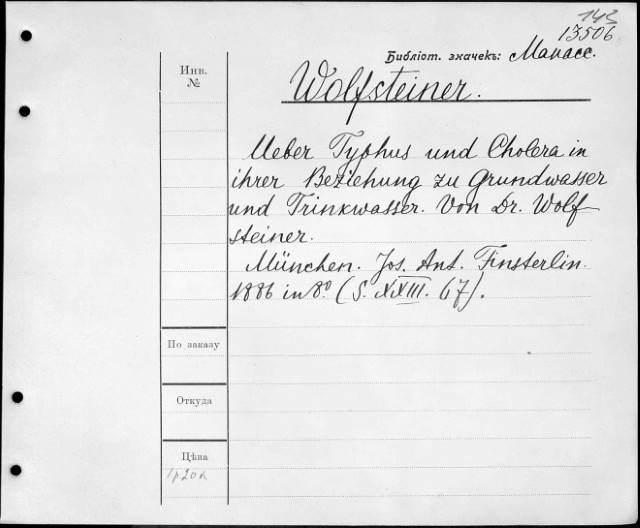 143
13506
Библіот. значекъ: Манасс.
Инв.
№
Wolfsteiner.
Ueber Typhus und Cholera in
ihrer Beziehung zu Grundwasser
und Trinkwasser. Von Dr. Wolf-
steiner.
München. Jos. Ant. Finsterlin.
1886 in 8º (S. XXIII. 67).
По заказу
Откуда
Цѣна
1р20к